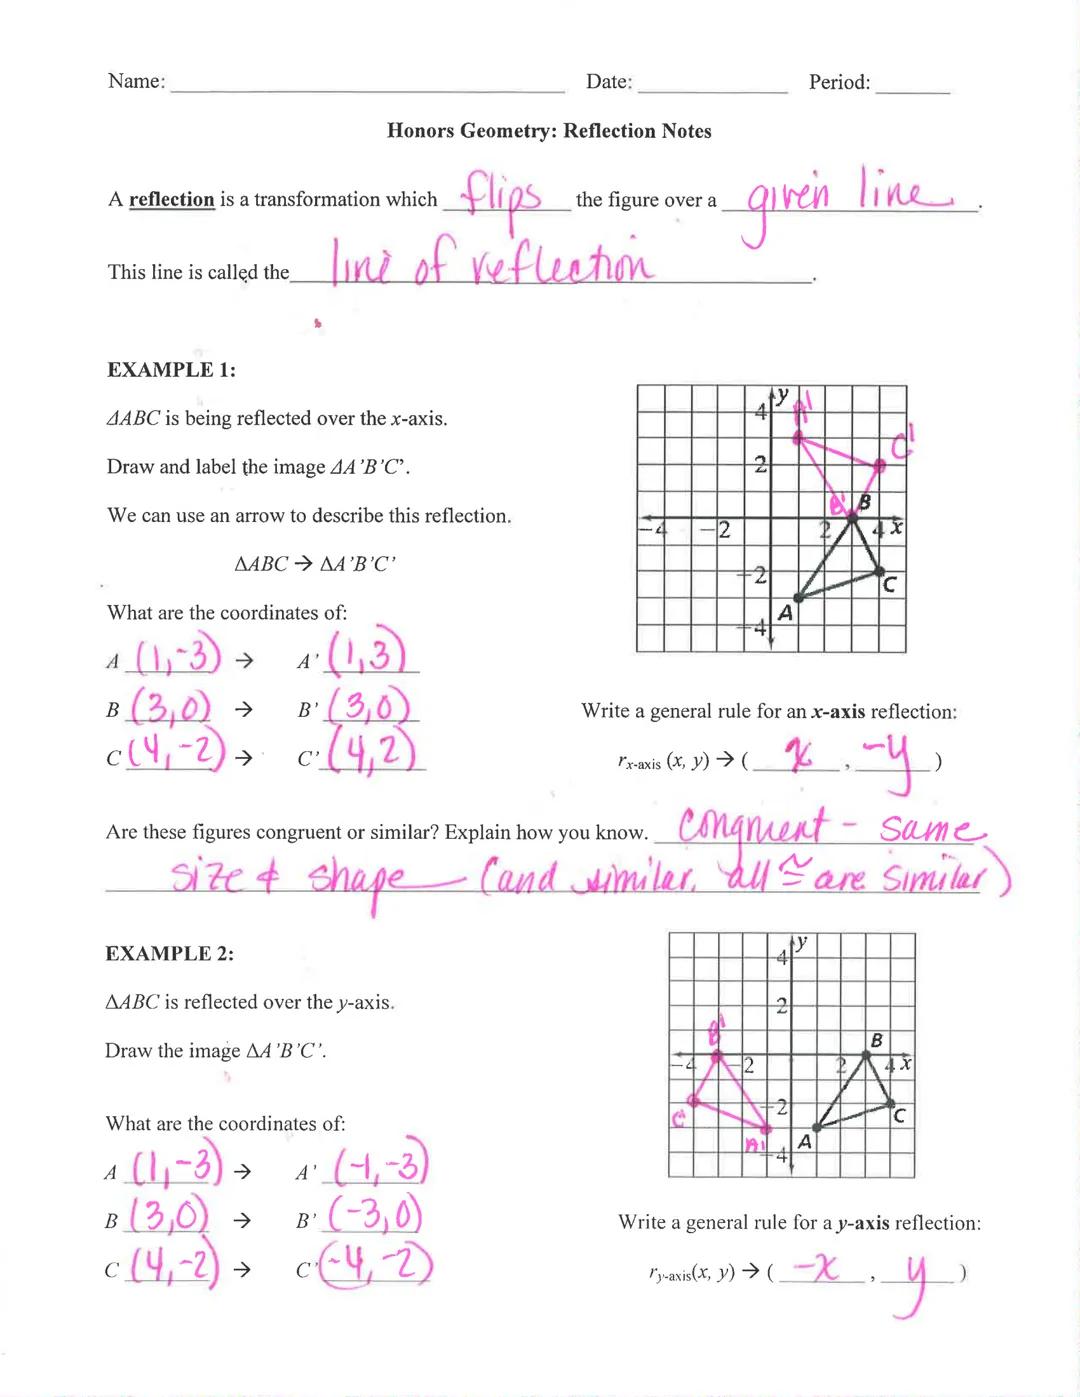 Name: ____ Date: ____ Period: ____
Honors Geometry: Reflection Notes
A reflection is a transformation which flips the figure over a given line.
This line is called the line of reflection.
EXAMPLE 1:
ΔABC is being reflected over the x-axis.
Draw and label the image ΔA'B'C'.
We can use an arrow to describe this reflection.
ΔABC → ΔA'B'C'
What are the coordinates of:
A (1,-3) → A' (1,3)
B (3,0) → B' (3,0)
C (4,-2) → C' (4,2)
y
4
A'
C'
2
B' B
-4 -2 2 4 x
-2
C
A
-4
Write a general rule for an x-axis reflection:
r x-axis (x, y) → ( x , -y )
Are these figures congruent or similar? Explain how you know. Congruent - same
size & shape (and similar, all ≅ are similar)
EXAMPLE 2:
ΔABC is reflected over the y-axis.
Draw the image ΔA'B'C'.
What are the coordinates of:
A (1,-3) → A' (-1,-3)
B (3,0) → B' (-3,0)
C (4,-2) → C' (-4,-2)
y
4
2
B' B
-4 -2 2 4 x
-2
C' C
A' A
-4
Write a general rule for a y-axis reflection:
r y-axis (x, y) → ( -x , y )